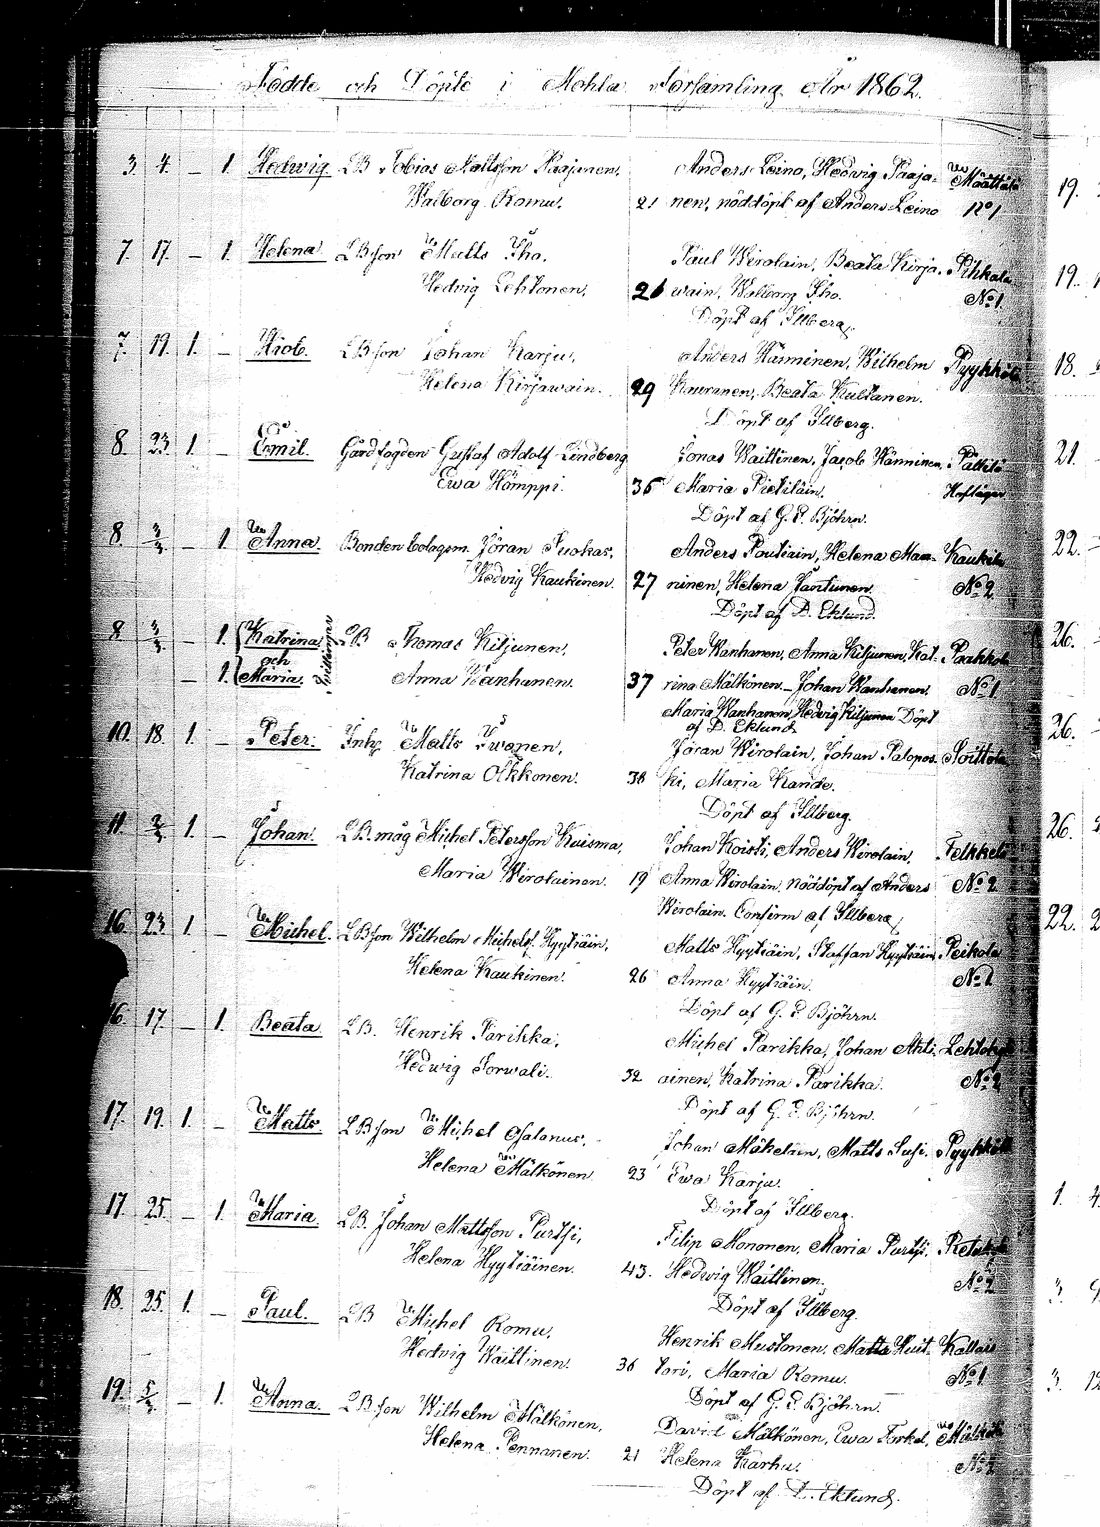 Födde och Döpte i Mohla Församling År 1862.
3. 4. — 1. Hedwig. LB Tobias Mattsson Paajanen, Anders Leino, Hedvig Paaja- Määttälä
Walborg Romu. 21 nen, nöddöpt af Anders Leino No 1
7. 17. — 1. Helena. LBson Matts Iho. Paul Wirolain, Beata Kirja- Pihkala
Hedvig Lehtonen. 26 wain, Walborg Iho. No 1.
Döpt af Illberg.
7. 19. 1. — Hiob. LBson Johan Karju, Anders Hänninen, Wilhelm Pyykkölä
Helena Kirjawain. 29 Kauranen, Beata Kultanen.
Döpt af Illberg.
8. 23. 1. — Emil. Gårdfogden Gustaf Adolf Lindberg Jonas Waittinen, Jacob Hänninen, Pällilä
Ewa Hömppi. 35 Maria Pietiläin. Hofläger
Döpt af G. E. Björhn.
8. 2/3. — 1. Anna. Bonden Bolagsm. Jöran Suokas, Anders Poutiain, Helena Man- Kaukila
Hedvig Kaukinen. 27 ninen, Helena Jantunen. No 2
Döpt af D. Eklund.
8. 3/3. — 1. Katrina LB Thomas Kiljunen, Peter Wanhanen, Anna Kiljunen, Kat- Paakkola
och
1. Maria. Tvillingar Anna Wanhanen. 37 rina Mälkönen — Johan Wanhanen. No 1
Maria Wanhanen, Hedvig Kiljunen Döpt
af D. Eklund
10. 18. 1. — Peter. Inhy Matts Iwanen, Jöran Wirolain, Johan Palopos- Soittola
Katrina Okkonen. 38 ki, Maria Kande.
Döpt af Illberg.
11. 2/3. 1. — Johan. LB. måg Michel Petersson Kuisma, Johan Koisti, Anders Wirolain. Telkkelä
Maria Wirolainen. 19 Anna Wirolain, nöddöpt af Anders No 2
Wirolain. Confirm af Illberg
16. 23. 1 — Michel. LBson Wilhelm Michelss. Hyytiäin, Matts Hyytiäin, Staffan Hyytiäin, Peikola
Helena Kaukinen. 26 Anna Hyytiäin. No 1
Döpt af G. E. Björhn.
16. 17. — 1. Beata. LB. Henrik Parikka, Michel Parikka, Johan Ahti-
Hedwig Torwali. 32 ainen, Katrina Parikka. No 2
Döpt af G. E. Björhn.
17. 19. 1. — Matts. LBson Michel Salanus, Johan Mäkeläin, Matts Susi. Pyykkölä
Helena Mälkönen 23 Ewa Karju.
Döpt af Illberg.
17. 25. — 1. Maria. LB. Johan Mattsson Purtsi, Filip Mononen, Maria Purtsi,
Helena Hyytiäinen. 43. Hedwig Waittinen. No 2
Döpt af Illberg.
18. 25. 1. — Paul. LB Michel Romu, Henrik Mustonen, Matts Huit- Kallais
Hedvig Waittinen. 36 tori, Maria Romu. No 1
Döpt af G. E. Björhn.
19. 5/3. — 1. Anna. LBson Wilhelm Mälkönen, David Mälkönen, Ewa Torkel, Mälkölä
Helena Pennanen. 21 Helena Karhu. No 2
Döpt af D. Eklund.